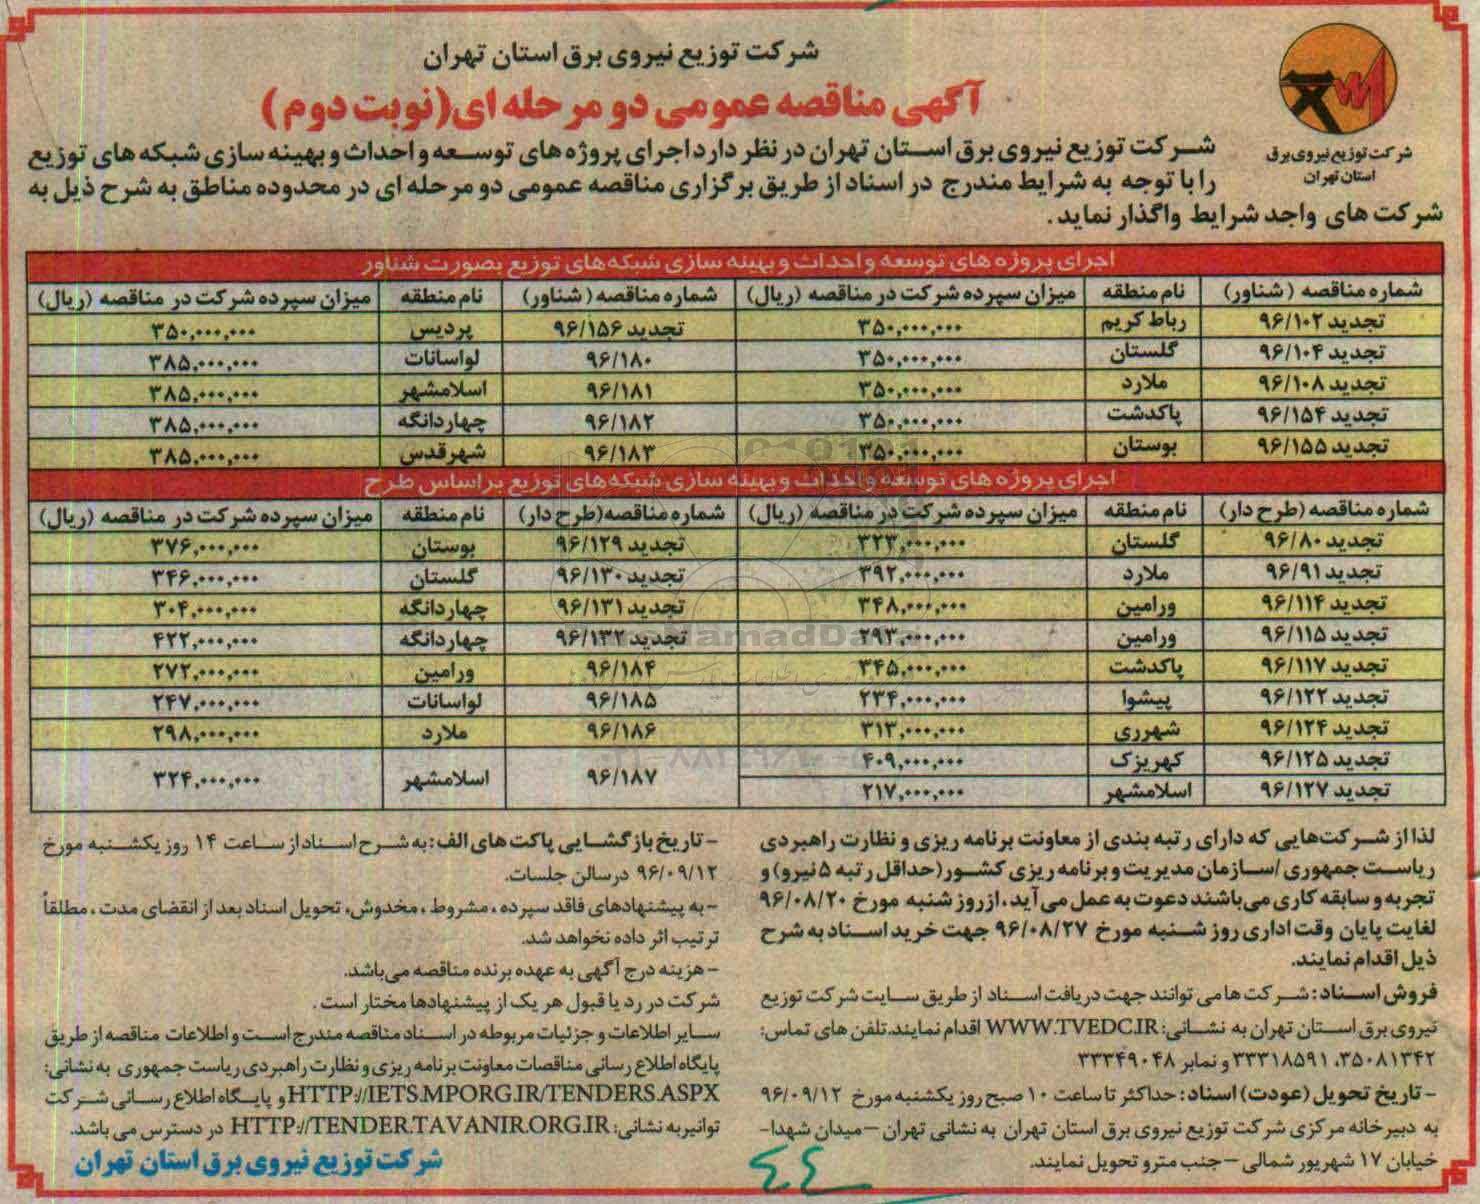 شرکت توزیع نیروی برق استان تهران
آگهی مناقصه عمومی دو مرحله ای (نوبت دوم)
شرکت توزیع نیروی برق
استان تهران
شرکت توزیع نیروی برق استان تهران در نظر دارد اجرای پروژه های توسعه و احداث و بهینه سازی شبکه های توزیع
را با توجه به شرایط مندرج در اسناد از طریق برگزاری مناقصه عمومی دو مرحله ای در محدوده مناطق به شرح ذیل به
شرکت های واجد شرایط واگذار نماید.
اجرای پروژه های توسعه و احداث و بهینه سازی شبکه های توزیع بصورت شناور
شماره مناقصه (شناور) نام منطقه میزان سپرده شرکت در مناقصه (ریال) شماره مناقصه (شناور) نام منطقه میزان سپرده شرکت در مناقصه (ریال)
تجدید ۹۶/۱۰۲ رباط کریم ۳۵۰,۰۰۰,۰۰۰ تجدید ۹۶/۱۵۶ پردیس ۳۵۰,۰۰۰,۰۰۰
تجدید ۹۶/۱۰۴ گلستان ۳۵۰,۰۰۰,۰۰۰ ۹۶/۱۸۰ لواسانات ۳۸۵,۰۰۰,۰۰۰
تجدید ۹۶/۱۰۸ ملارد ۳۵۰,۰۰۰,۰۰۰ ۹۶/۱۸۱ اسلامشهر ۳۸۵,۰۰۰,۰۰۰
تجدید ۹۶/۱۵۴ پاکدشت ۳۵۰,۰۰۰,۰۰۰ ۹۶/۱۸۲ چهاردانگه ۳۸۵,۰۰۰,۰۰۰
تجدید ۹۶/۱۵۵ بوستان ۳۵۰,۰۰۰,۰۰۰ ۹۶/۱۸۳ شهرقدس ۳۸۵,۰۰۰,۰۰۰
اجرای پروژه های توسعه و احداث و بهینه سازی شبکه های توزیع براساس طرح
شماره مناقصه (طرح دار) نام منطقه میزان سپرده شرکت در مناقصه (ریال) شماره مناقصه (طرح دار) نام منطقه میزان سپرده شرکت در مناقصه (ریال)
تجدید ۹۶/۸۰ گلستان ۳۲۳,۰۰۰,۰۰۰ تجدید ۹۶/۱۲۹ بوستان ۳۷۶,۰۰۰,۰۰۰
تجدید ۹۶/۹۱ ملارد ۳۹۲,۰۰۰,۰۰۰ تجدید ۹۶/۱۳۰ گلستان ۳۴۶,۰۰۰,۰۰۰
تجدید ۹۶/۱۱۴ ورامین ۳۴۸,۰۰۰,۰۰۰ تجدید ۹۶/۱۳۱ چهاردانگه ۳۰۴,۰۰۰,۰۰۰
تجدید ۹۶/۱۱۵ ورامین ۲۹۳,۰۰۰,۰۰۰ تجدید ۹۶/۱۳۲ چهاردانگه ۴۲۲,۰۰۰,۰۰۰
تجدید ۹۶/۱۱۷ پاکدشت ۳۴۵,۰۰۰,۰۰۰ ۹۶/۱۸۴ ورامین ۲۷۲,۰۰۰,۰۰۰
تجدید ۹۶/۱۲۲ پیشوا ۲۳۴,۰۰۰,۰۰۰ ۹۶/۱۸۵ لواسانات ۲۴۷,۰۰۰,۰۰۰
تجدید ۹۶/۱۲۴ شهرری ۳۱۳,۰۰۰,۰۰۰ ۹۶/۱۸۶ ملارد ۲۹۸,۰۰۰,۰۰۰
تجدید ۹۶/۱۲۵ کهریزک ۴۰۹,۰۰۰,۰۰۰ ۹۶/۱۸۷ اسلامشهر ۳۲۴,۰۰۰,۰۰۰
تجدید ۹۶/۱۲۷ اسلامشهر ۲۱۷,۰۰۰,۰۰۰
لذا از شرکت‌هایی که دارای رتبه بندی از معاونت برنامه ریزی و نظارت راهبردی
ریاست جمهوری /سازمان مدیریت و برنامه ریزی کشور (حداقل رتبه ۵ نیرو) و
تجربه و سابقه کاری می‌باشند دعوت به عمل می آید، از روز شنبه مورخ ۹۶/۰۸/۲۰
لغایت پایان وقت اداری روز شنبه مورخ ۹۶/۰۸/۲۷ جهت خرید اسناد به شرح
ذیل اقدام نمایند.
فروش اسناد: شرکت ها می توانند جهت دریافت اسناد از طریق سایت شرکت توزیع
نیروی برق استان تهران به نشانی: WWW.TVEDC.IR اقدام نمایند. تلفن های تماس:
۳۵۰۸۱۳۴۲، ۳۳۳۱۸۵۹۱ و نمابر ۳۳۳۴۹۰۴۸
- تاریخ تحویل (عودت) اسناد: حداکثر تا ساعت ۱۰ صبح روز یکشنبه مورخ ۹۶/۰۹/۱۲
به دبیرخانه مرکزی شرکت توزیع نیروی برق استان تهران به نشانی تهران – میدان شهدا-
خیابان ۱۷ شهریور شمالی – جنب مترو تحویل نمایند.
- تاریخ بازگشایی پاکت های الف: به شرح اسناد از ساعت ۱۴ روز یکشنبه مورخ
۹۶/۰۹/۱۲ درسالن جلسات.
- به پیشنهادهای فاقد سپرده، مشروط، مخدوش، تحویل اسناد بعد از انقضای مدت، مطلقاً
ترتیب اثر داده نخواهد شد.
- هزینه درج آگهی به عهده برنده مناقصه می‌باشد.
شرکت در رد یا قبول هر یک از پیشنهادها مختار است.
سایر اطلاعات و جزئیات مربوطه در اسناد مناقصه مندرج است و اطلاعات مناقصه از طریق
پایگاه اطلاع رسانی مناقصات معاونت برنامه ریزی و نظارت راهبردی ریاست جمهوری به نشانی:
HTTP://IETS.MPORG.IR/TENDERS.ASPX و پایگاه اطلاع رسانی شرکت
توانیر به نشانی: HTTP://TENDER.TAVANIR.ORG.IR در دسترس می باشد.
شرکت توزیع نیروی برق استان تهران
۴۴